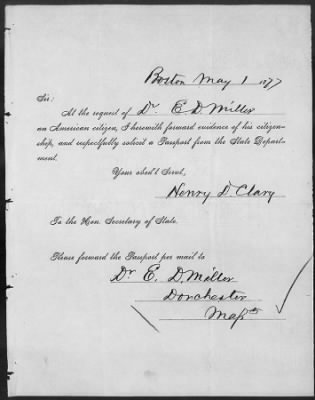 Boston May 1 1877
Sir:
At the request of Dr E. D. Miller
an American citizen, I herewith forward evidence of his citizen-
ship, and respectfully solicit a Passport from the State Depart-
ment.
Your obed't Servt,
Henry D. Clary
To the Hon. Secretary of State.
Please forward the Passport per mail to
Dr E. D. Miller
Dorchester
Mass